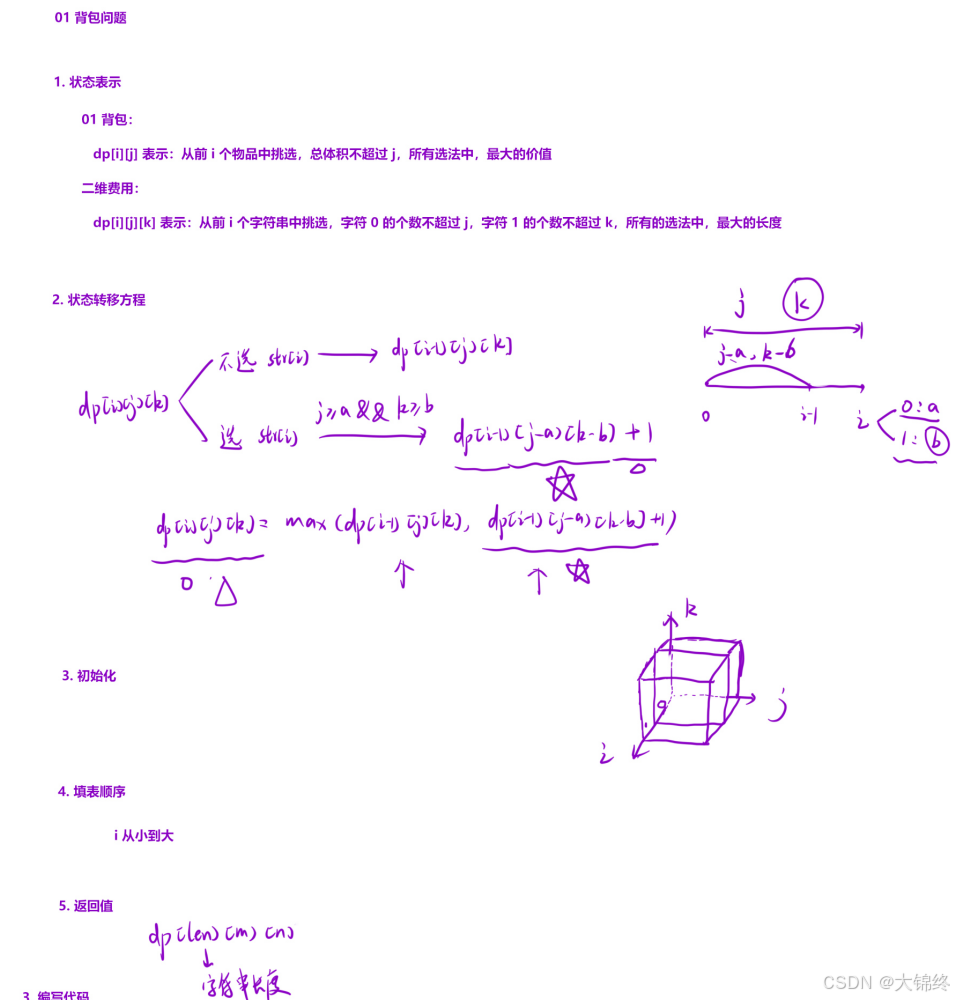 01 背包问题
1. 状态表示
01 背包：
dp[i][j] 表示：从前 i 个物品中挑选，总体积不超过 j，所有选法中，最大的价值
二维费用：
dp[i][j][k] 表示：从前 i 个字符串中挑选，字符 0 的个数不超过 j，字符 1 的个数不超过 k，所有的选法中，最大的长度
2. 状态转移方程
j k
j-a, k-b
0 i-1 i
0: a
1: b
dp[i][j][k]
不选 str[i] dp[i-1][j][k]
选 str[i] j≥a && k≥b dp[i-1][j-a][k-b] + 1
0
dp[i][j][k] = max(dp[i-1][j][k], dp[i-1][j-a][k-b]+1)
0
k
j
i
0
3. 初始化
4. 填表顺序
i 从小到大
5. 返回值
dp[len][m][n]
字符串长度
3. 编写代码
CSDN @大锦终